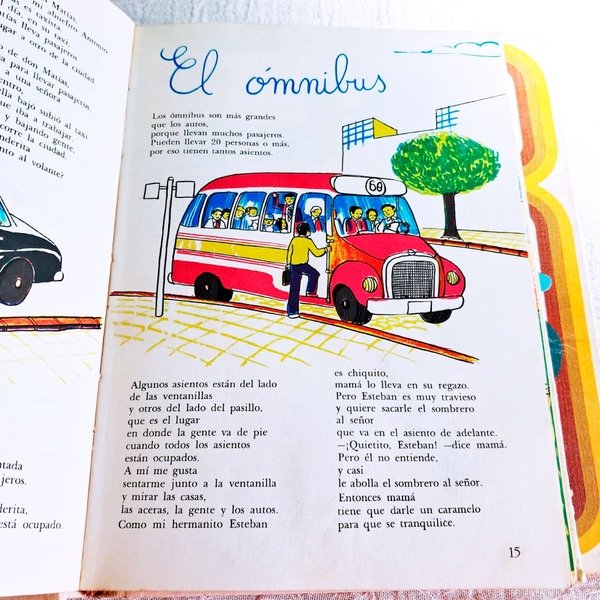 Matías.
mi abuelito Antonio
es taxista
día, en su taxi
lleva pasajeros
lugar a otro de la ciudad.
de don Matías.
para llevar pasajeros
a una señora
centro,
ella bajó subió al taxi
que iba a trabajar.
y bajando gente.
corre la ciudad
banderita
al volante?
jeros.
derita,
está ocupado.
El ómnibus
Los ómnibus son más grandes
que los autos,
porque llevan muchos pasajeros.
Pueden llevar 20 personas o más,
por eso tienen tantos asientos.
60
Algunos asientos están del lado
de las ventanillas
y otros del lado del pasillo,
que es el lugar
en donde la gente va de pie
cuando todos los asientos
están ocupados.
A mí me gusta
sentarme junto a la ventanilla
y mirar las casas,
las aceras, la gente y los autos.
Como mi hermanito Esteban
es chiquito,
mamá lo lleva en su regazo.
Pero Esteban es muy travieso
y quiere sacarle el sombrero
al señor
que va en el asiento de adelante.
—¡Quietito, Esteban! —dice mamá.
Pero él no entiende,
y casi
le abolla el sombrero al señor.
Entonces mamá
tiene que darle un caramelo
para que se tranquilice.
15